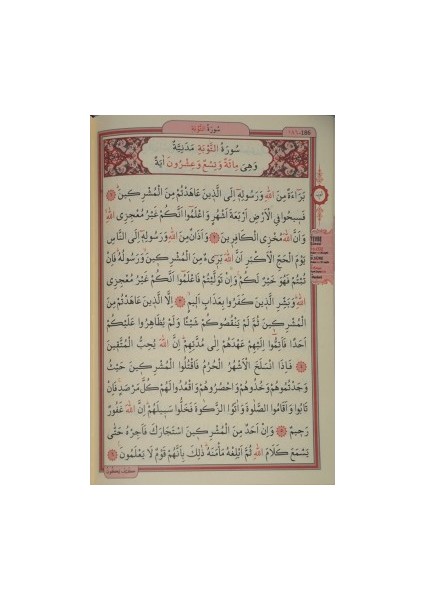 سُورَةُ التَّوْبَةِ
١٨٦ -186
سُورَةُ التَّوْبَةِ مَدَنِيَّةٌ
وَهِىَ مِائَةٌ وَتِسْعٌ وَعِشْرُونَ اٰيَةً
بَرَٓاءَةٌ مِنَ اللّٰهِ وَرَسُولِه۪ٓ اِلَى الَّذ۪ينَ عَاهَدْتُمْ مِنَ الْمُشْرِك۪ينَۜ
فَس۪يحُوا فِى الْاَرْضِ اَرْبَعَةَ اَشْهُرٍ وَاعْلَمُٓوا اَنَّكُمْ غَيْرُ مُعْجِزِى اللّٰهِۙ
وَاَنَّ اللّٰهَ مُخْزِى الْكَافِر۪ينَ وَاَذَانٌ مِنَ اللّٰهِ وَرَسُولِه۪ٓ اِلَى النَّاسِ
يَوْمَ الْحَجِّ الْاَكْبَرِ اَنَّ اللّٰهَ بَر۪ٓىءٌ مِنَ الْمُشْرِك۪ينَ وَرَسُولُهُۜ فَاِنْ
تُبْتُمْ فَهُوَ خَيْرٌ لَكُمْۚ وَاِنْ تَوَلَّيْتُمْ فَاعْلَمُٓوا اَنَّكُمْ غَيْرُ مُعْجِزِى
اللّٰهِۜ وَبَشِّرِ الَّذ۪ينَ كَفَرُوا بِعَذَابٍ اَل۪يمٍۙ اِلَّا الَّذ۪ينَ عَاهَدْتُمْ مِنَ
الْمُشْرِك۪ينَ ثُمَّ لَمْ يَنْقُصُوكُمْ شَيْـًٔا وَلَمْ يُظَاهِرُوا عَلَيْكُمْ
اَحَدًا فَاَتِمُّٓوا اِلَيْهِمْ عَهْدَهُمْ اِلٰى مُدَّتِهِمْۜ اِنَّ اللّٰهَ يُحِبُّ الْمُتَّق۪ينَ
فَاِذَا انْسَلَخَ الْاَشْهُرُ الْحُرُمُ فَاقْتُلُوا الْمُشْرِك۪ينَ حَيْثُ
وَجَدْتُمُوهُمْ وَخُذُوهُمْ وَاحْصُرُوهُمْ وَاقْعُدُوا لَهُمْ كُلَّ مَرْصَدٍۚ فَاِنْ
تَابُوا وَاَقَامُوا الصَّلٰوةَ وَاٰتَوُا الزَّكٰوةَ فَخَلُّوا سَب۪يلَهُمْۜ اِنَّ اللّٰهَ غَفُورٌ
رَح۪يمٌ وَاِنْ اَحَدٌ مِنَ الْمُشْرِك۪ينَ اسْتَجَارَكَ فَاَجِرْهُ حَتّٰى
يَسْمَعَ كَلَامَ اللّٰهِ ثُمَّ اَبْلِغْهُ مَأْمَنَهُۜ ذٰلِكَ بِاَنَّهُمْ قَوْمٌ لَا يَعْلَمُونَ